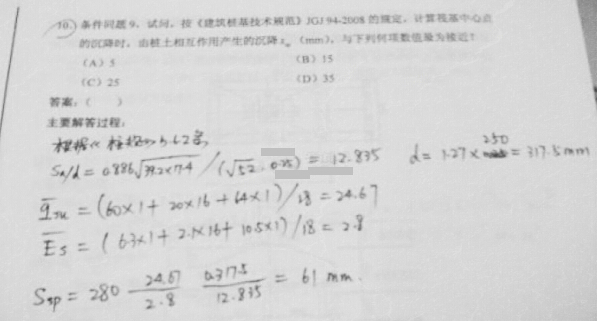 10. 条件同题9。试问，按《建筑桩基技术规范》JGJ 94-2008的规定，计算筏基中心点
的沉降时，由桩土相互作用产生的沉降 s_sp（mm），与下列何项数值最为接近？
（A）5 （B）15
（C）25 （D）35
答案：（ ）
主要解答过程：
根据《桩规》5.6.2条
Sa/d = 0.886√39.2×7.4 / (√52 · 0.25) = 12.835 d = 1.27 × 250 = 317.5mm
q̄su = (60×1 + 20×16 + 64×1)/18 = 24.67
Ēs = (6.3×1 + 2.1×16 + 10.5×1)/18 = 2.8
Ssp = 280 24.67/2.8 0.3175/12.835 = 61 mm.